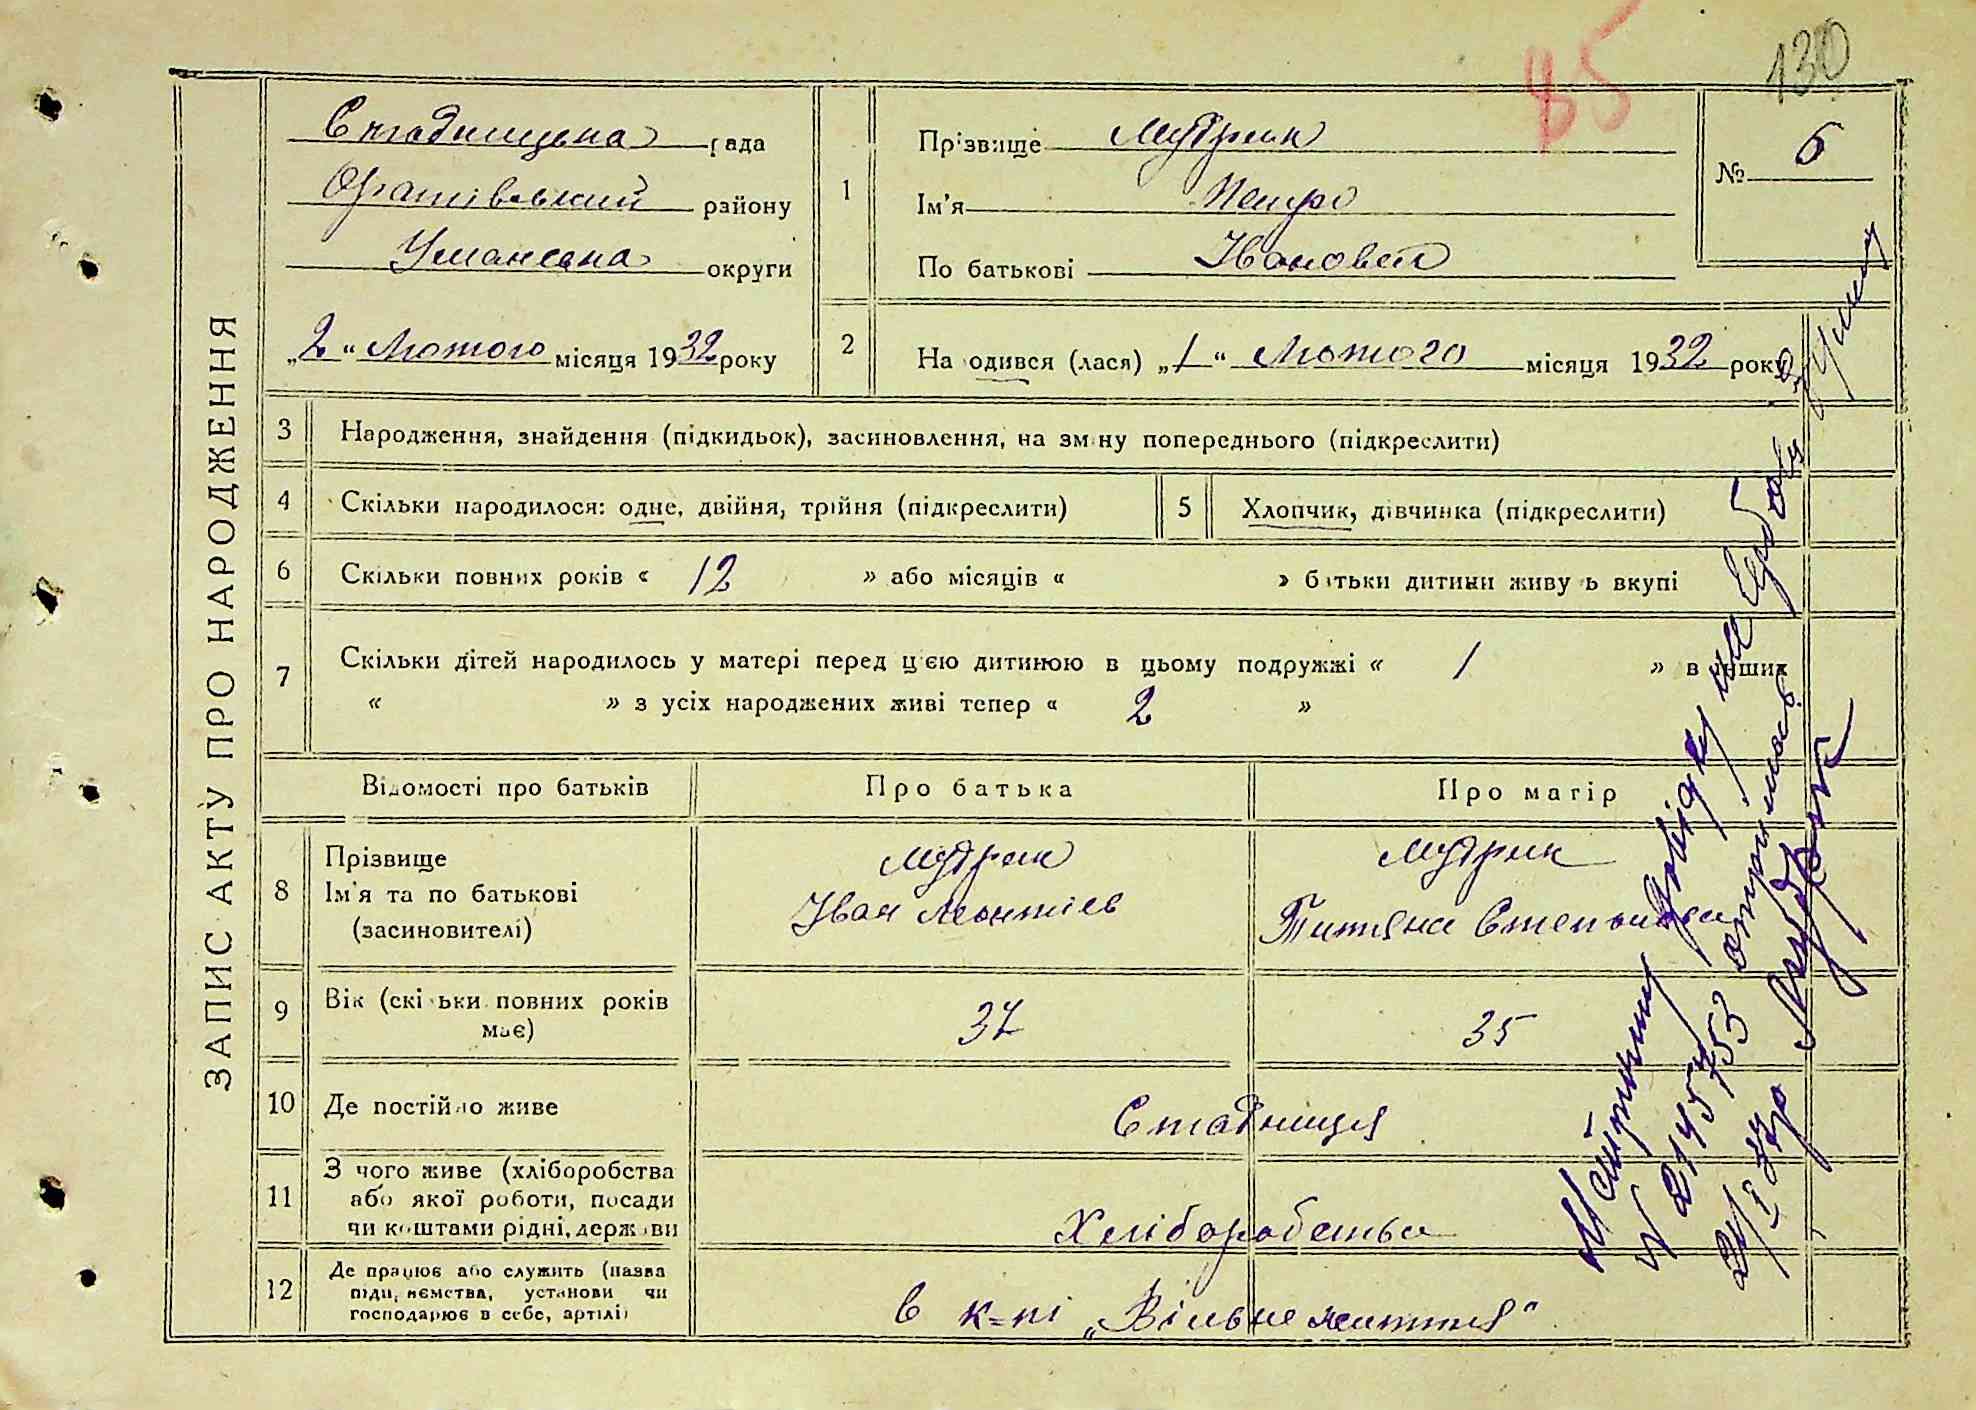 85
130
ЗАПИС АКТУ ПРО НАРОДЖЕННЯ
Стадницька рада
Оратівський району
Уманська округи
„2“ Лютого місяця 1932 року
1
Прізвище Мудрик
Ім'я Петро
По батькові Іванович
№ 6
2
Народився (лася) „1“ Лютого місяця 1932 року
3 Народження, знайдення (підкидьок), засиновлення, на зміну попереднього (підкреслити)
4 Скільки народилося: одне, двійня, трійня (підкреслити)
5 Хлопчик, дівчинка (підкреслити)
6 Скільки повних років « 12 » або місяців « » батьки дитини живуть вкупі
7 Скільки дітей народилось у матері перед цією дитиною в цьому подружжі « 1 » в інших
« » з усіх народжених живі тепер « 2 »
Відомості про батьків
Про батька
Про матір
8 Прізвище
Ім'я та по батькові
(засиновителі)
Мудрик
Іван Леонтіев
Мудрик
Титяна Степанова
9 Вік (скільки повних років
має)
37
35
10 Де постійно живе
Стадниця
11 З чого живе (хліборобства
або якої роботи, посади
чи коштами рідні, держави
Хліборобства
12 Де працює або служить (назва
підприємства, установи чи
господарює в себе, артілі)
в к-пі „Вільне життя“
№ 2145753
24/I
Мудрик